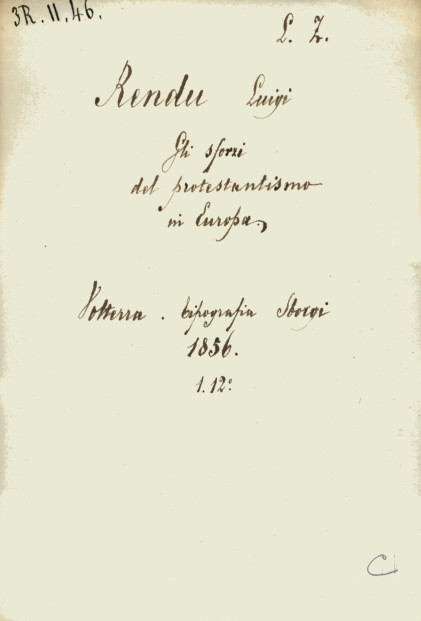 3R.II.46.
L. Z.
Rendu Luigi
Gli sforzi
del protestantismo
in Europa.
Volterra. tipografia Sborgi
1856.
1.12°
C